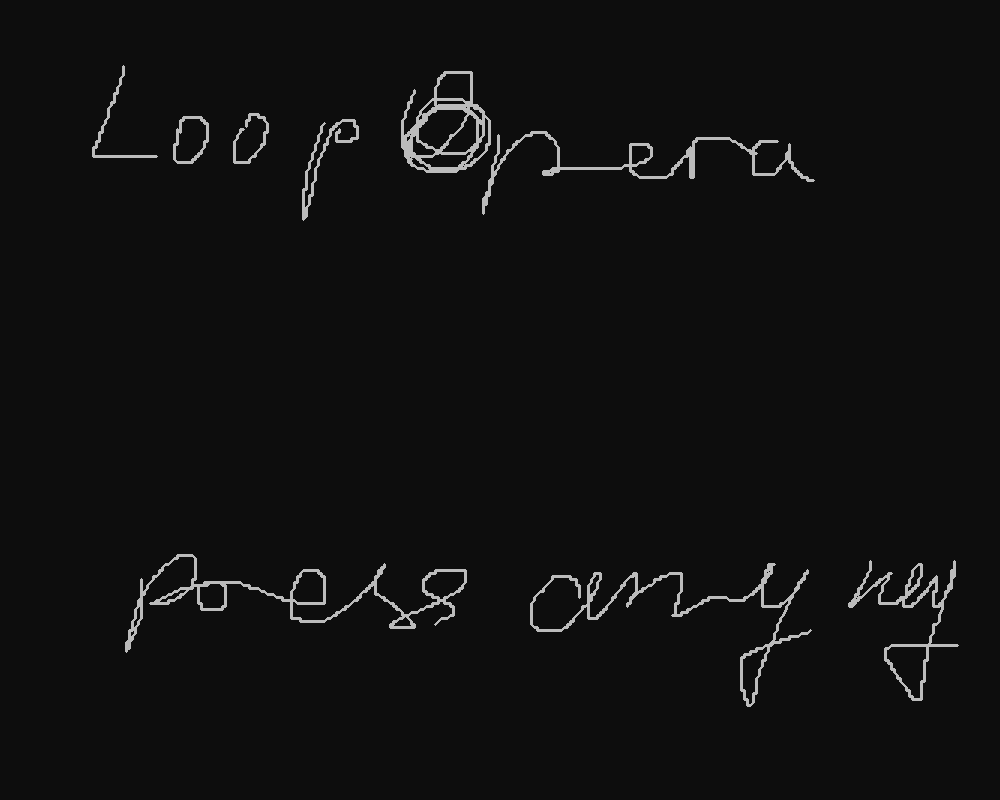 Loop Opera
press any key